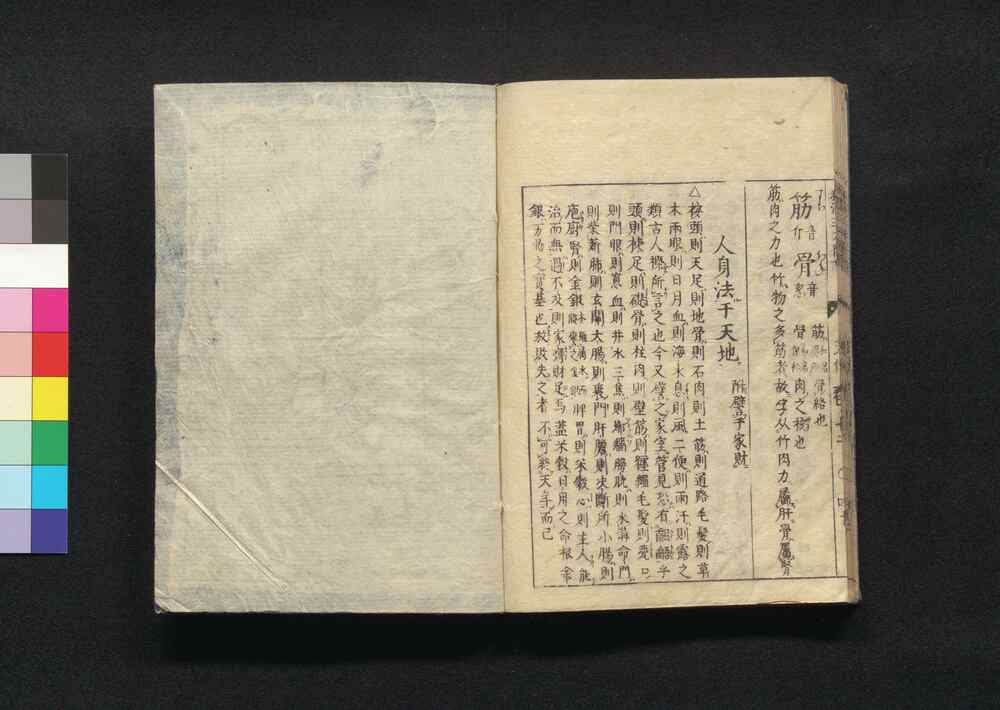 筋 骨 音 筋 骨絡也
骨 肉之核也
筋肉之力也竹物之多筋者故字从竹肉力屬肝骨屬腎
人身法于天地 附譬乎家財
△按頭則天足則地骨則石肉則土筋則道路毛髮則草
木兩眼則日月血則海水息則風二便則雨汗則露之
類古人標所言之也今又譬之家室管見恐有齟齬乎
頭則棟足則礎骨則柱肉則壁筋則繩毛髮則甍口
則門眼則窓血則井水三焦則膀胱則水溝命門
則柴薪肺則玄關大腸則裏門肝膽則决斷所小腸則
庖廚腎則金銀脾胃則米穀心則主人能
治而無過不及則家煖財足焉蓋米穀日用之命根金
銀万物之實基也故敗失之者不可終天年而已